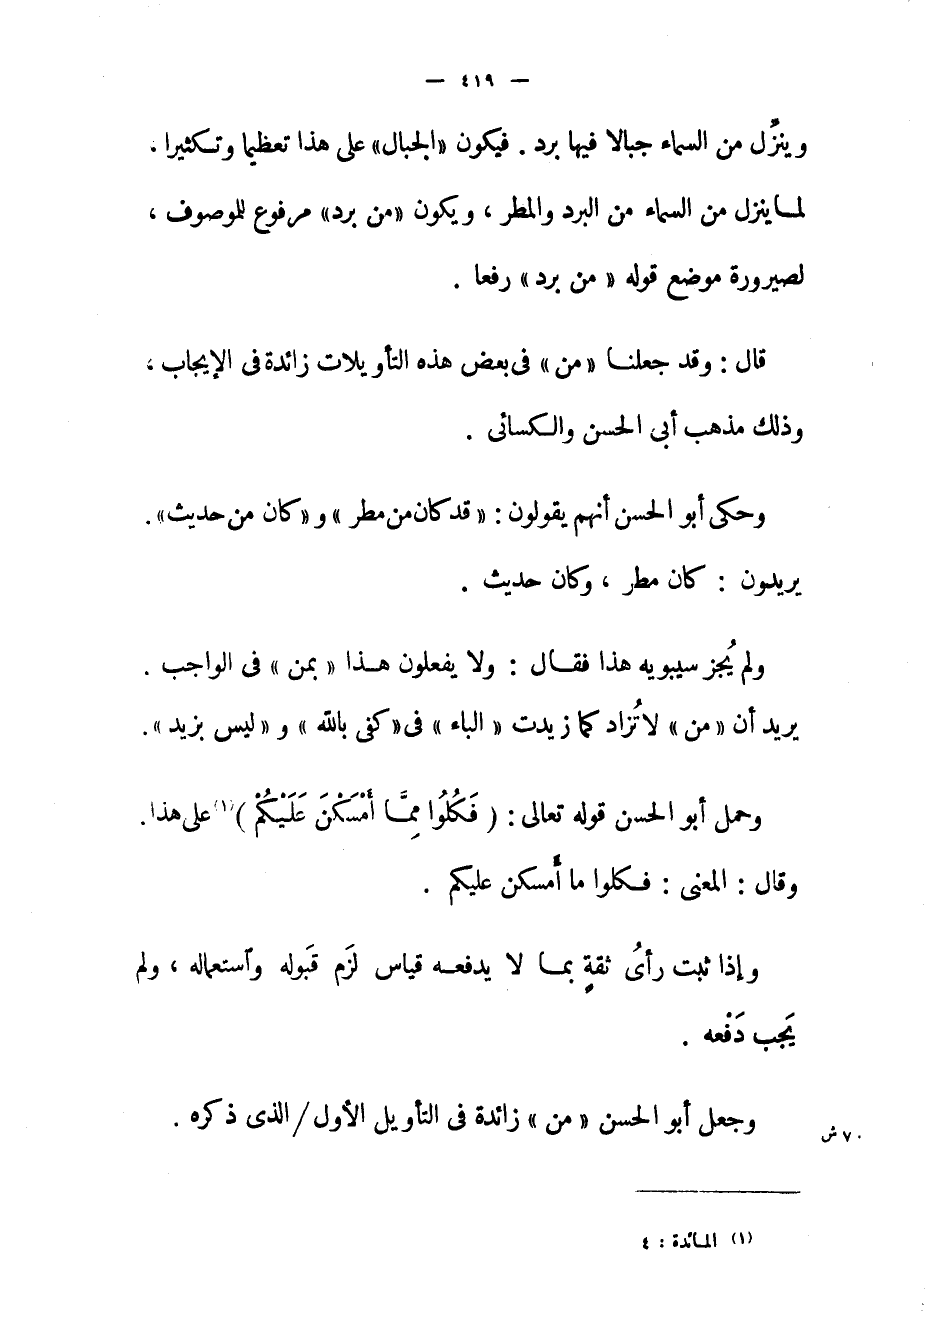 — ٤١٩ —
وينزِّل من السماء جبالا فيها برد . فيكون «الجبال» على هذا تعظيما وتكثيرا ،
لما ينزل من السماء من البرد والمطر ، ويكون «من برد» مرفوع للموصوف ،
لصيرورة موضع قوله « من برد» رفعا .
قال : وقد جعلنا «من» فى بعض هذه التأويلات زائدة فى الإيجاب ،
وذلك مذهب أبى الحسن والكسائى .
وحكى أبو الحسن أنهم يقولون : « قد كان من مطر » و «كان من حديث» .
يريدون : كان مطر ، وكان حديث .
ولم يُجز سيبويه هذا فقال : ولا يفعلون هذا « بمن » فى الواجب .
يريد أن «من» لا تُزاد كما زيدت « الباء » فى «كفى بالله » و «ليس بزيد» .
وحمل أبو الحسن قوله تعالى : ( فَكُلُوا مِمَّا أَمْسَكْنَ عَلَيْكُمْ )(١) على هذا .
وقال : المعنى : فكلوا ما أمسكن عليكم .
وإذا ثبت رأىُ ثقةٍ بما لا يدفعه قياس لَزِم قَبوله واستعماله ، ولم
يَجب دَفْعه .
وجعل أبو الحسن « من » زائدة فى التأويل الأول / الذى ذكره .
٧٠ ش
(١) المائدة : ٤